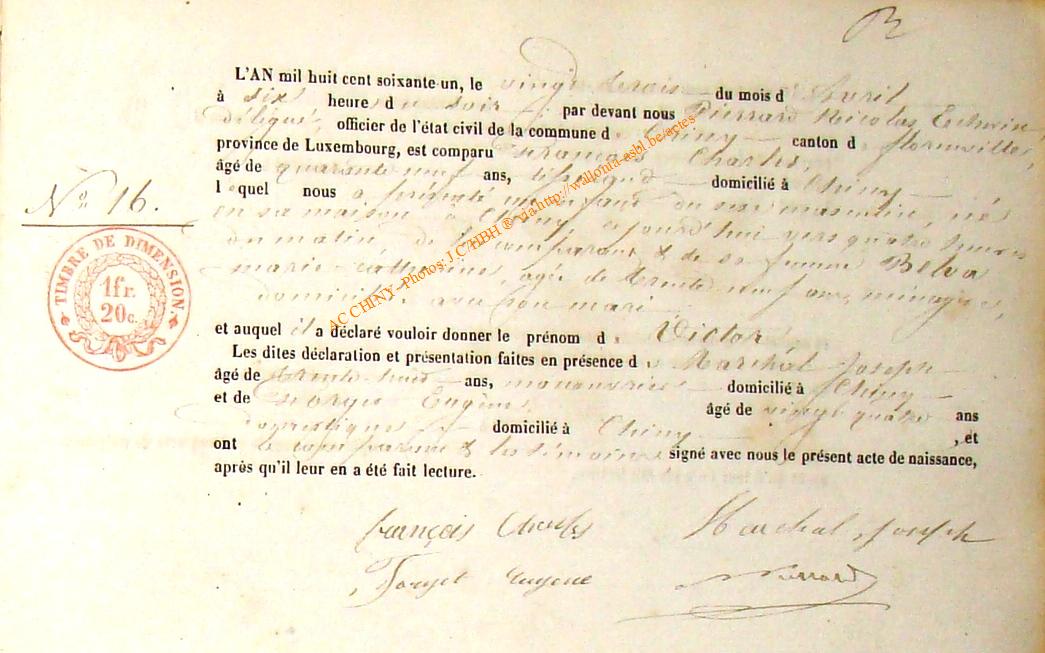 L'AN mil huit cent soixante-un, le vingt trois du mois d'Avril
à six heures du soir par devant nous Pierrard Nicolas
délégué, officier de l'état civil de la commune de Chiny canton de florenville,
province de Luxembourg, est comparu François Charles,
âgé de quarante neuf ans, domicilié à Chiny
lequel nous a présenté un enfant du sexe masculin, né
en sa maison à Chiny, aujourd'hui vers quatre heures
du matin, de lui comparant & de sa femme Belva
marie-catherine, agée de trente neuf ans, ménagère,
domiciliée avec son mari
et auquel il a déclaré vouloir donner le prénom de Victor
Les dites déclaration et présentation faites en présence de Marchal Joseph
âgé de trente ans, manouvrier domicilié à Chiny
et de Eugène âgé de vingt quatre ans
domestique domicilié à Chiny , et
ont le comparant & les témoins signé avec nous le présent acte de naissance,
après qu'il leur en a été fait lecture.
No 16.
TIMBRE DE DIMENSION.
1fr.
20c.
AC CHINY - Photos: J.C. HBH ® via http://wallonia-asbl.be/actes
françois Charles Marchal Joseph
Eugene Pierrard